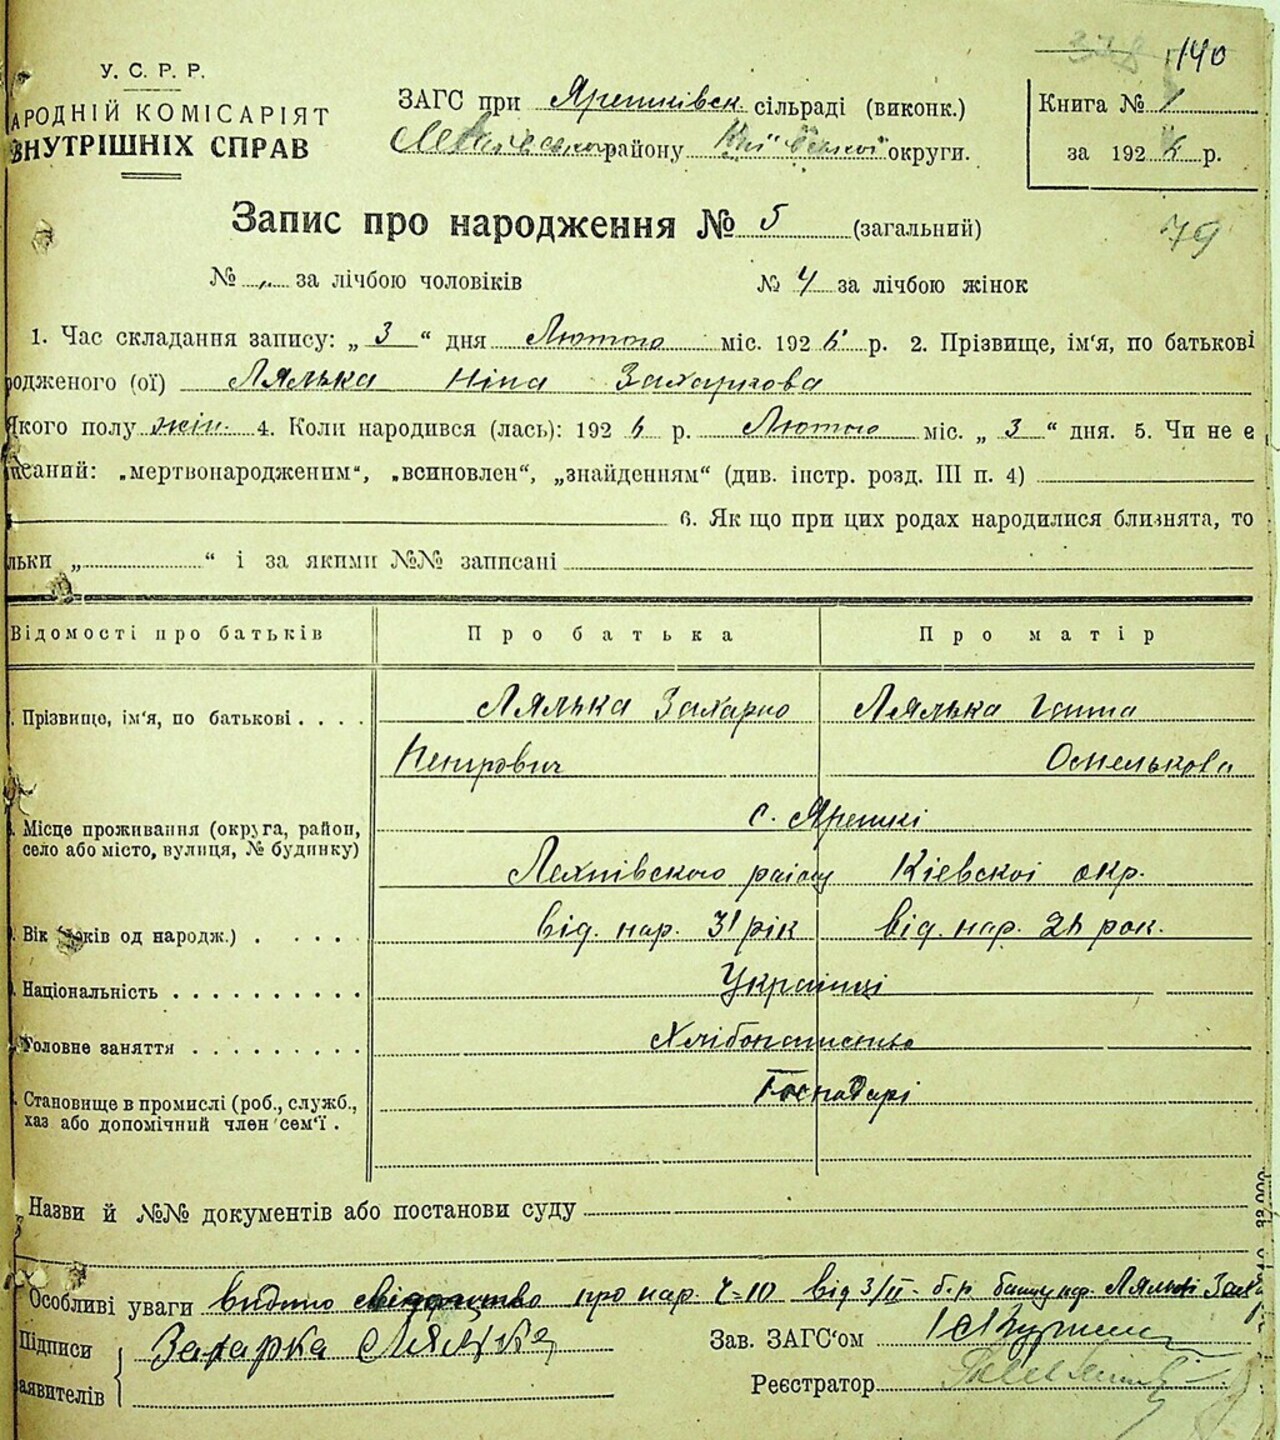 140
У. С. Р. Р.
АРОДНІЙ КОМІСАРІЯТ
ВНУТРІШНІХ СПРАВ
ЗАГС приЯрешківск. сільраді (виконк.)
району округи.
Книга № 1
за 1926 р.
Запис про народження № 5 (загальний)
79
№ „ за лічбою чоловіків № 4 за лічбою жінок
1. Час складання запису: „ 3 “ дня Лютого міс. 1926 р. 2. Прізвище, ім'я, по батькові
родженого (ої) Лялька Ніна Захаркова
Якого полу жін. 4. Коли народився (лась): 1926 р. Лютого міс. „ 3 “ дня. 5. Чи не є
писаний: „мертвонародженим“, „всиновлен“, „знайденням“ (див. інстр. розд. III п. 4)
6. Як що при цих родах народилися близнята, то
льки „ “ і за якими №№ записані
Відомості про батьків Про батька Про матір
Прізвище, ім'я, по батькові . . . . Лялька Захарко Лялька Ганна
Петрович Омелькова
Місце проживання (округа, район, село або місто, вулиця, № будинку) с. Ярешкі
району Кіевскоі окр.
Вік (років од народж.) . . . . . від. нар. 31 рік від. нар. рок.
Національність . . . . . . . . . . Українці
Головне заняття . . . . . . . . . Хлібопашество
Становище в промислі (роб., служб., Господарі
хаз або допомічний член сем'ї .
Назви й №№ документів або постанови суду
Особливі уваги видано свідоцтво про нар. Ч=10 від 3/II- б.р. Лялькі Зах
Підписи Захарка Лялька Зав. ЗАГС'ом
аявителів Реєстратор